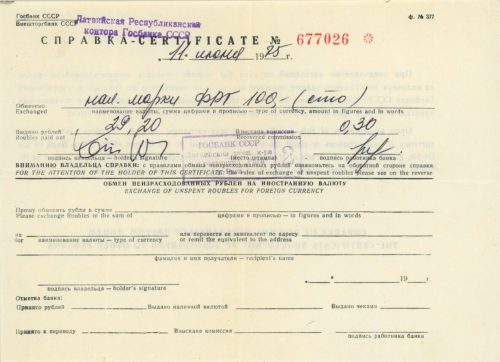 Госбанк СССР
Внешторгбанк СССР
ф. № 377
Латвийская Республиканская
контора Госбанка СССР
СПРАВКА-CERTIFICATE № 677026
11 июня 1975 г.
Обменено нал. марки ФРГ 100,- (сто)
Exchanged наименование валюты, сумма цифрами и прописью — type of currency, amount in figures and in words
Выдано рублей 29,20 Взыскана комиссия 0,30
Roubles paid out Recovered commission
ГОСБАНК СССР
2
подпись владельца — holder's signature (место штампа) подпись работника банка
ВНИМАНИЮ ВЛАДЕЛЬЦА СПРАВКИ: с правилами обмена неизрасходованных рублей на валюту ознакомьтесь на обратной стороне справки.
FOR THE ATTENTION OF THE HOLDER OF THIS CERTIFICATE: the rules of exchange of unspent roubles please see on the reverse
ОБМЕН НЕИЗРАСХОДОВАННЫХ РУБЛЕЙ НА ИНОСТРАННУЮ ВАЛЮТУ
EXCHANGE OF UNSPENT ROUBLES FOR FOREIGN CURRENCY
Прошу обменять рубли в сумме
Please exchange Roubles in the sum of цифрами и прописью — in figures and in words
на или перевести ее эквивалент по адресу
for наименование валюты — type of currency or remit the equivalent to the address
фамилия и имя получателя — recipient's name
" " 19 г.
подпись владельца — holder's signature
Отметка банка:
Принято рублей Выдано наличной валютой Выдано чеками
Принято к переводу Взыскана комиссия
подпись работника банка